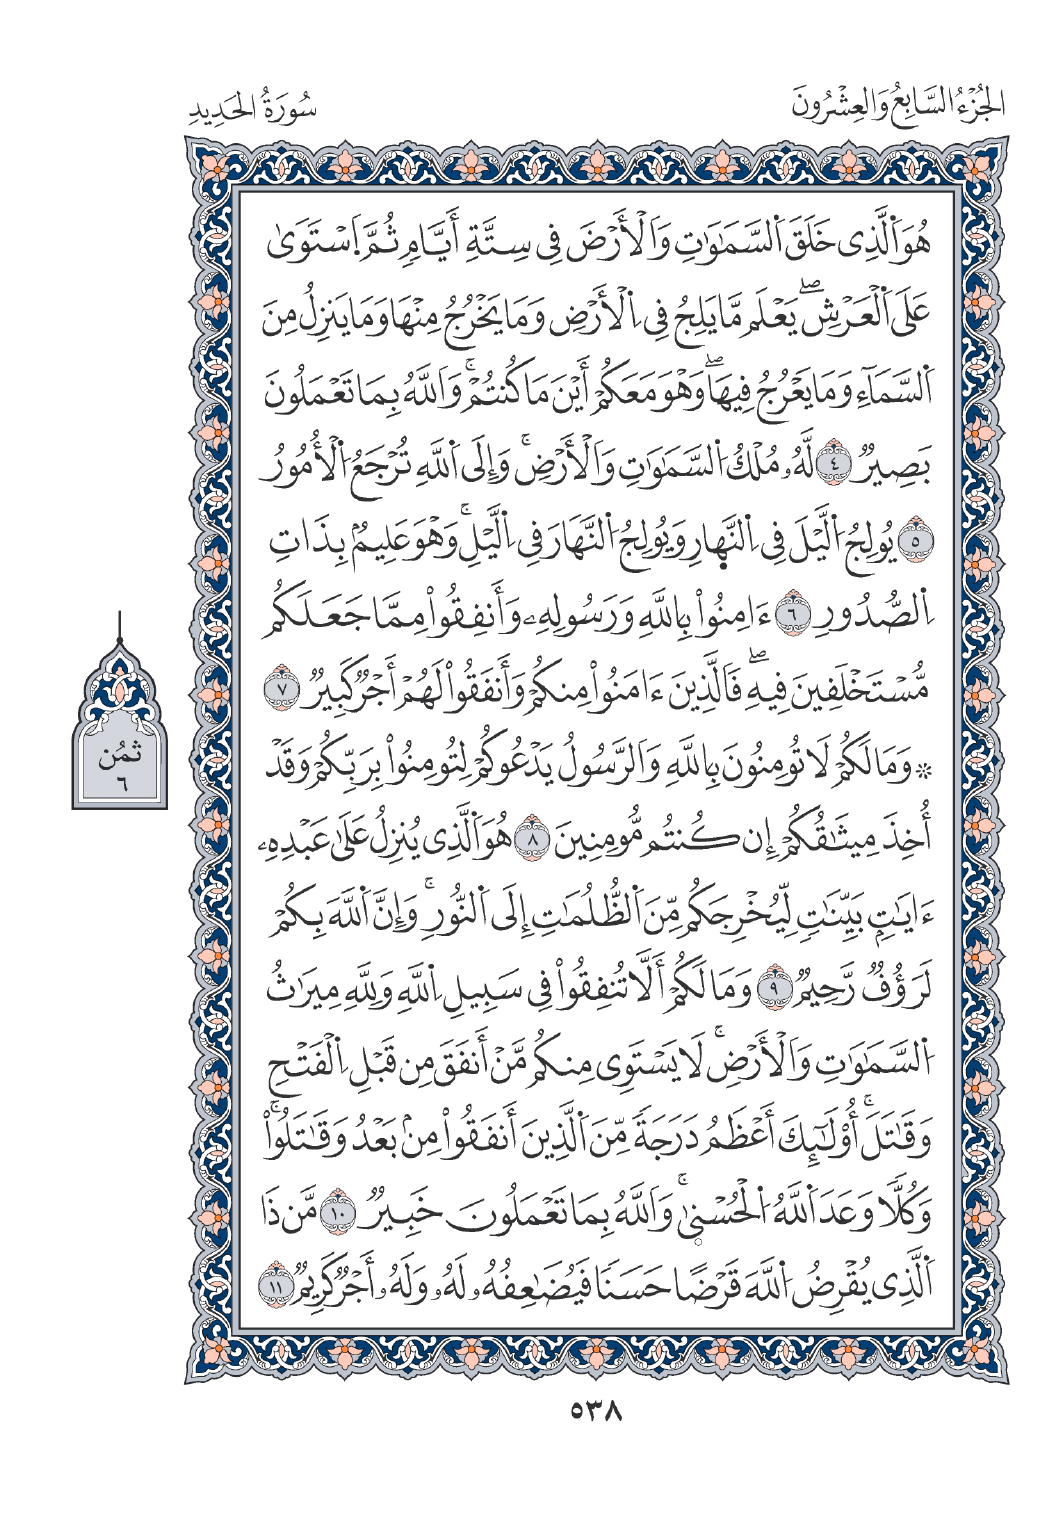 الجُزْءُ السَّابِعُ وَالعِشْرُونَ
سُورَةُ الحَدِيدِ
هُوَ اَ۬لَّذِے خَلَقَ اَ۬لسَّمَٰوَٰتِ وَالْأَرْضَ فِے سِتَّةِ أَيَّامٖ ثُمَّ اَ۪سْتَوَىٰ
عَلَى اَ۬لْعَرْشِۖ يَعْلَم مَّا يَلِجُ فِے اِ۬لْأَرْضِ وَمَا يَخْرُجُ مِنْهَا وَمَا يَنزِلُ مِنَ
اَ۬لسَّمَآءِ وَمَا يَعْرُجُ فِيهَاۖ وَهْوَ مَعَكُمْ أَيْنَ مَا كُنتُمْۚ وَاللَّهُ بِمَا تَعْمَلُونَ
بَصِيرٞ ٤ لَّهُۥ مُلْكُ اُ۬لسَّمَٰوَٰتِ وَالْأَرْضِۚ وَإِلَى اَ۬للَّهِ تُرْجَعُ اُ۬لْأُمُورُ
٥ يُولِجُ اُ۬لَّيْلَ فِے اِ۬لنَّهٜارِ وَيُولِجُ اُ۬لنَّهَارَ فِے اِ۬لَّيْلِۚ وَهْوَ عَلِيمُۢ بِذَاتِ
اِ۬لصُّدُورِ ٦ ءَامِنُواْ بِاللَّهِ وَرَسُولِهِۦ وَأَنفِقُواْ مِمَّا جَعَلَكُم
مُّسْتَخْلَفِينَ فِيهِۖ فَالَّذِينَ ءَامَنُواْ مِنكُمْ وَأَنفَقُواْ لَهُمْ أَجْرٞ كَبِيرٞ ٧
۞ وَمَا لَكُمْ لَا تُومِنُونَ بِاللَّهِ وَالرَّسُولُ يَدْعُوكُمْ لِتُومِنُواْ بِرَبِّكُمْ وَقَدْ
أُخِذَ مِيثَٰقُكُمْ إِن كُنتُم مُّومِنِينَ ٨ هُوَ اَ۬لَّذِے يُنزِلُ عَلَىٰ عَبْدِهِۦ
ءَايَٰتِۢ بَيِّنَٰتٖ لِّيُخْرِجَكُم مِّنَ اَ۬لظُّلُمَٰتِ إِلَى اَ۬لنُّورِۚ وَإِنَّ اَ۬للَّهَ بِكُمْ
لَرَؤُفٞ رَّحِيمٞ ٩ وَمَا لَكُمْ أَلَّا تُنفِقُواْ فِے سَبِيلِ اِ۬للَّهِ وَلِلَّهِ مِيرَٰثُ
اُ۬لسَّمَٰوَٰتِ وَالْأَرْضِۚ لَا يَسْتَوِے مِنكُم مَّنْ أَنفَقَ مِن قَبْلِ اِ۬لْفَتْحِ
وَقَٰتَلَۚ أُوْلَٰٓئِكَ أَعْظَمُ دَرَجَةٗ مِّنَ اَ۬لَّذِينَ أَنفَقُواْ مِنۢ بَعْدُ وَقَٰتَلُواْۚ
وَكُلّٗا وَعَدَ اَ۬للَّهُ اُ۬لْحُسْن۪ىٰۚ وَاللَّهُ بِمَا تَعْمَلُونَ خَبِيرٞ ١٠ مَّن ذَا
اَ۬لَّذِے يُقْرِضُ اُ۬للَّهَ قَرْضًا حَسَنٗا فَيُضَٰعِفُهُۥ لَهُۥ وَلَهُۥ أَجْرٞ كَرِيمٞ ١١
ثُمُن
٦
٥٣٨